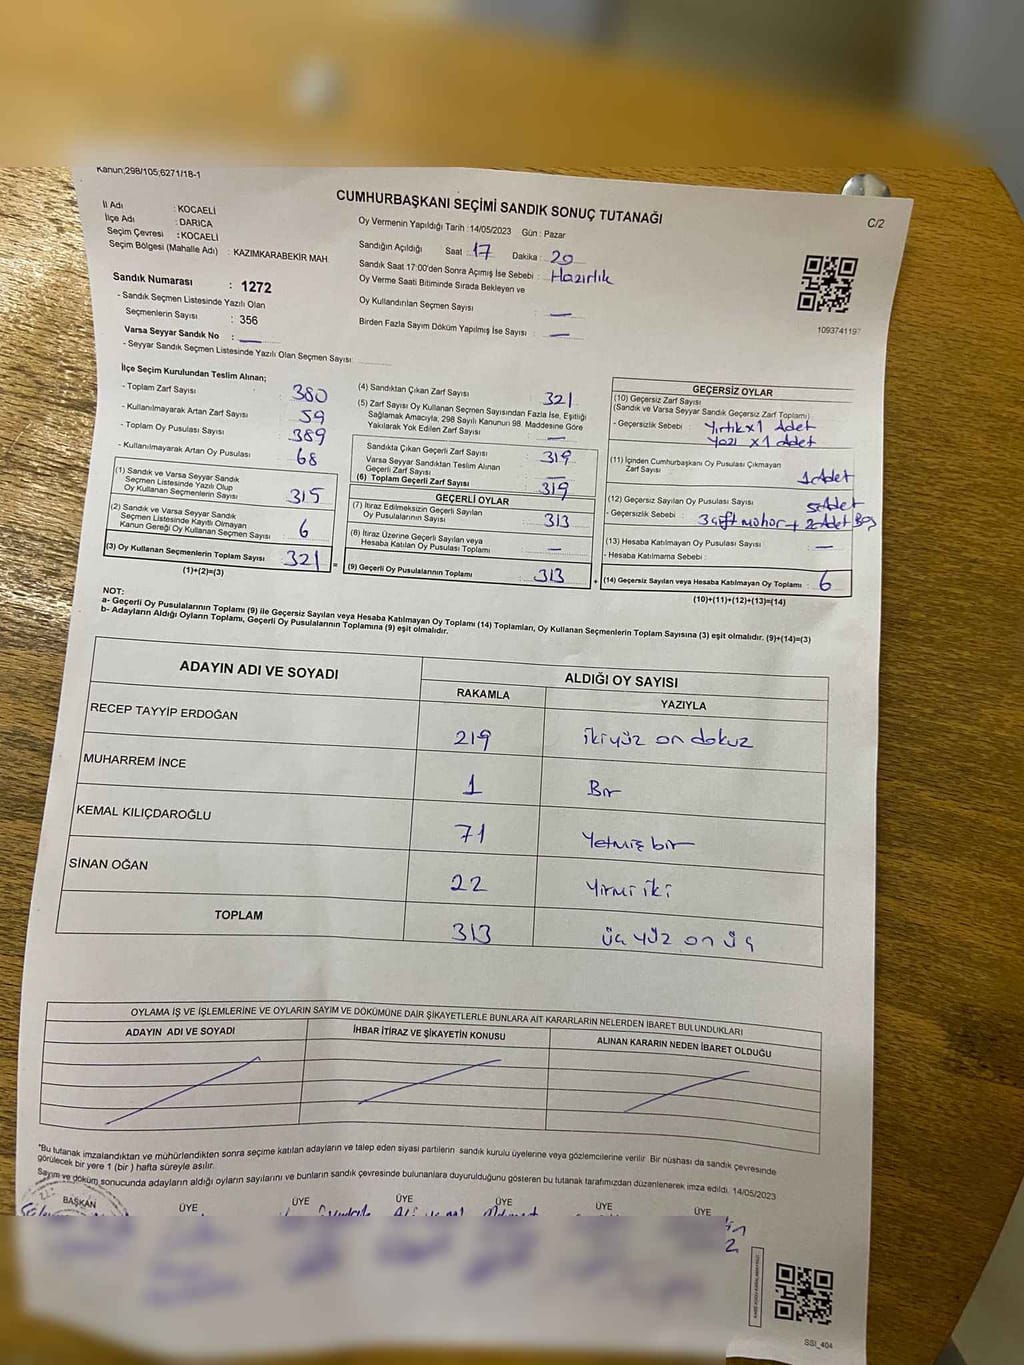 Kanun;298/105;6271/18-1
CUMHURBAŞKANI SEÇİMİ SANDIK SONUÇ TUTANAĞI
C/2
İl Adı : KOCAELİ
İlçe Adı : DARICA
Seçim Çevresi : KOCAELİ
Seçim Bölgesi (Mahalle Adı) : KAZIMKARABEKİR MAH
Oy Vermenin Yapıldığı Tarih :14/05/2023 Gün : Pazar
Sandığın Açıldığı Saat : 17 Dakika : 20
Sandık Saat 17:00'den Sonra Açımış İse Sebebi : Hazırlık
Oy Verme Saati Bitiminde Sırada Bekleyen ve
Oy Kullandırılan Seçmen Sayısı : —
Birden Fazla Sayım Döküm Yapılmış İse Sayısı : —
109374119
Sandık Numarası : 1272
- Sandık Seçmen Listesinde Yazılı Olan
Seçmenlerin Sayısı : 356
Varsa Seyyar Sandık No : —
- Seyyar Sandık Seçmen Listesinde Yazılı Olan Seçmen Sayısı:
İlçe Seçim Kurulundan Teslim Alınan;
- Toplam Zarf Sayısı : 380
- Kullanılmayarak Artan Zarf Sayısı : 59
- Toplam Oy Pusulası Sayısı : 389
- Kullanılmayarak Artan Oy Pusulası : 68
(1) Sandık ve Varsa Seyyar Sandık
Seçmen Listesinde Yazılı Olup
Oy Kullanan Seçmenlerin Sayısı : 315
(2) Sandık ve Varsa Seyyar Sandık
Seçmen Listesinde Kayıtlı Olmayan
Kanun Gereği Oy Kullanan Seçmen Sayısı : 6
(3) Oy Kullanan Seçmenlerin Toplam Sayısı : 321
(1)+(2)=(3)
(4) Sandıktan Çıkan Zarf Sayısı : 321
(5) Zarf Sayısı Oy Kullanan Seçmen Sayısından Fazla İse, Eşitliği
Sağlamak Amacıyla, 298 Sayılı Kanunun 98. Maddesine Göre
Yakılarak Yok Edilen Zarf Sayısı : —
Sandıkta Çıkan Geçerli Zarf Sayısı : 319
Varsa Seyyar Sandıktan Teslim Alınan
Geçerli Zarf Sayısı : —
(6) Toplam Geçerli Zarf Sayısı : 319
GEÇERLİ OYLAR
(7) İtiraz Edilmeksizin Geçerli Sayılan
Oy Pusulalarının Sayısı : 313
(8) İtiraz Üzerine Geçerli Sayılan veya
Hesaba Katılan Oy Pusulası Toplamı : —
= (9) Geçerli Oy Pusulalarının Toplamı : 313
GEÇERSİZ OYLAR
(10) Geçersiz Zarf Sayısı
(Sandık ve Varsa Seyyar Sandık Geçersiz Zarf Toplamı)
- Geçersizlik Sebebi : Yırtık x 1 Adet
Yazı x 1 adet
(11) İçinden Cumhurbaşkanı Oy Pusulası Çıkmayan
Zarf Sayısı : 1 Adet
(12) Geçersiz Sayılan Oy Pusulası Sayısı : 5 Adet
- Geçersizlik Sebebi : 3 çift mühür + 2 Adet Boş
(13) Hesaba Katılmayan Oy Pusulası Sayısı : —
- Hesaba Katılmama Sebebi :
+ (14) Geçersiz Sayılan veya Hesaba Katılmayan Oy Toplamı : 6
(10)+(11)+(12)+(13)=(14)
NOT:
a- Geçerli Oy Pusulalarının Toplamı (9) ile Geçersiz Sayılan veya Hesaba Katılmayan Oy Toplamı (14) Toplamları, Oy Kullanan Seçmenlerin Toplam Sayısına (3) eşit olmalıdır. (9)+(14)=(3)
b- Adayların Aldığı Oyların Toplamı, Geçerli Oy Pusulalarının Toplamına (9) eşit olmalıdır.
ADAYIN ADI VE SOYADI ALDIĞI OY SAYISI
RAKAMLA YAZIYLA
RECEP TAYYİP ERDOĞAN 219 ikiyüz on dokuz
MUHARREM İNCE 1 Bir
KEMAL KILIÇDAROĞLU 71 Yetmiş bir
SİNAN OĞAN 22 Yirmi iki
TOPLAM 313 üç yüz on üç
OYLAMA İŞ VE İŞLEMLERİNE VE OYLARIN SAYIM VE DÖKÜMÜNE DAİR ŞİKAYETLERLE BUNLARA AİT KARARLARIN NELERDEN İBARET BULUNDUKLARI
ADAYIN ADI VE SOYADI İHBAR İTİRAZ VE ŞİKAYETİN KONUSU ALINAN KARARIN NEDEN İBARET OLDUĞU
"Bu tutanak imzalandıktan ve mühürlendikten sonra seçime katılan adayların ve talep eden siyasi partilerin sandık kurulu üyelerine veya gözlemcilerine verilir. Bir nüshası da sandık çevresinde
görülecek bir yere 1 (bir ) hafta süreyle asılır.
Sayım ve döküm sonucunda adayların aldığı oyların sayılarını ve bunların sandık çevresinde bulunanlara duyurulduğunu gösteren bu tutanak tarafımızdan düzenlenerek imza edildi. 14/05/2023
BAŞKAN ÜYE ÜYE ÜYE ÜYE ÜYE ÜYE
SSI_404